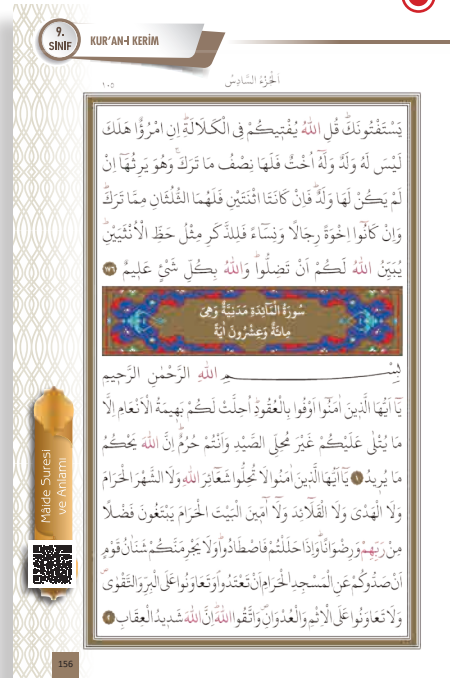 9.
SINIF
KUR'AN-I KERİM
اَلْجُزْءُ السَّادِسُ
١٠٥
يَسْتَفْتُونَكَۜ قُلِ اللّٰهُ يُفْت۪يكُمْ فِي الْكَلَالَةِۜ اِنِ امْرُؤٌا هَلَكَ
لَيْسَ لَهُ وَلَدٌ وَلَهُٓ اُخْتٌ فَلَهَا نِصْفُ مَا تَرَكَۚ وَهُوَ يَرِثُهَٓا اِنْ
لَمْ يَكُنْ لَهَا وَلَدٌۜ فَاِنْ كَانَتَا اثْنَتَيْنِ فَلَهُمَا الثُّلُثَانِ مِمَّا تَرَكَۜ
وَاِنْ كَانُٓوا اِخْوَةً رِجَالًا وَنِسَٓاءً فَلِلذَّكَرِ مِثْلُ حَظِّ الْاُنْثَيَيْنِۜ
يُبَيِّنُ اللّٰهُ لَكُمْ اَنْ تَضِلُّواۜ وَاللّٰهُ بِكُلِّ شَيْءٍ عَل۪يمٌ ١٧٦
سُورَةُ الْمَائِدَةِ مَدَنِيَّةٌ وَهِىَ
مِائَةٌ وَعِشْرُونَ اٰيَةً
بِسْمِ اللّٰهِ الرَّحْمٰنِ الرَّح۪يمِ
يَٓا اَيُّهَا الَّذ۪ينَ اٰمَنُٓوا اَوْفُوا بِالْعُقُودِۜ اُحِلَّتْ لَكُمْ بَه۪يمَةُ الْاَنْعَامِ اِلَّا
مَا يُتْلٰى عَلَيْكُمْ غَيْرَ مُحِلِّي الصَّيْدِ وَاَنْتُمْ حُرُمٌۜ اِنَّ اللّٰهَ يَحْكُمُ
مَا يُر۪يدُ ١ يَٓا اَيُّهَا الَّذ۪ينَ اٰمَنُوا لَا تُحِلُّوا شَعَٓائِرَ اللّٰهِ وَلَا الشَّهْرَ الْحَرَامَ
وَلَا الْهَدْيَ وَلَا الْقَلَٓائِدَ وَلَٓا آٰمّ۪ينَ الْبَيْتَ الْحَرَامَ يَبْتَغُونَ فَضْلًا
مِنْ رَبِّهِمْ وَرِضْوَانًاۜ وَاِذَا حَلَلْتُمْ فَاصْطَادُواۜ وَلَا يَجْرِمَنَّكُمْ شَنَاٰنُ قَوْمٍ
اَنْ صَدُّوكُمْ عَنِ الْمَسْجِدِ الْحَرَامِ اَنْ تَعْتَدُواۢ وَتَعَاوَنُوا عَلَى الْبِرِّ وَالتَّقْوٰىۖ
وَلَا تَعَاوَنُوا عَلَى الْاِثْمِ وَالْعُدْوَانِۖ وَاتَّقُوا اللّٰهَۜ اِنَّ اللّٰهَ شَد۪يدُ الْعِقَابِ ٢
Mâide Suresi
ve Anlamı
156